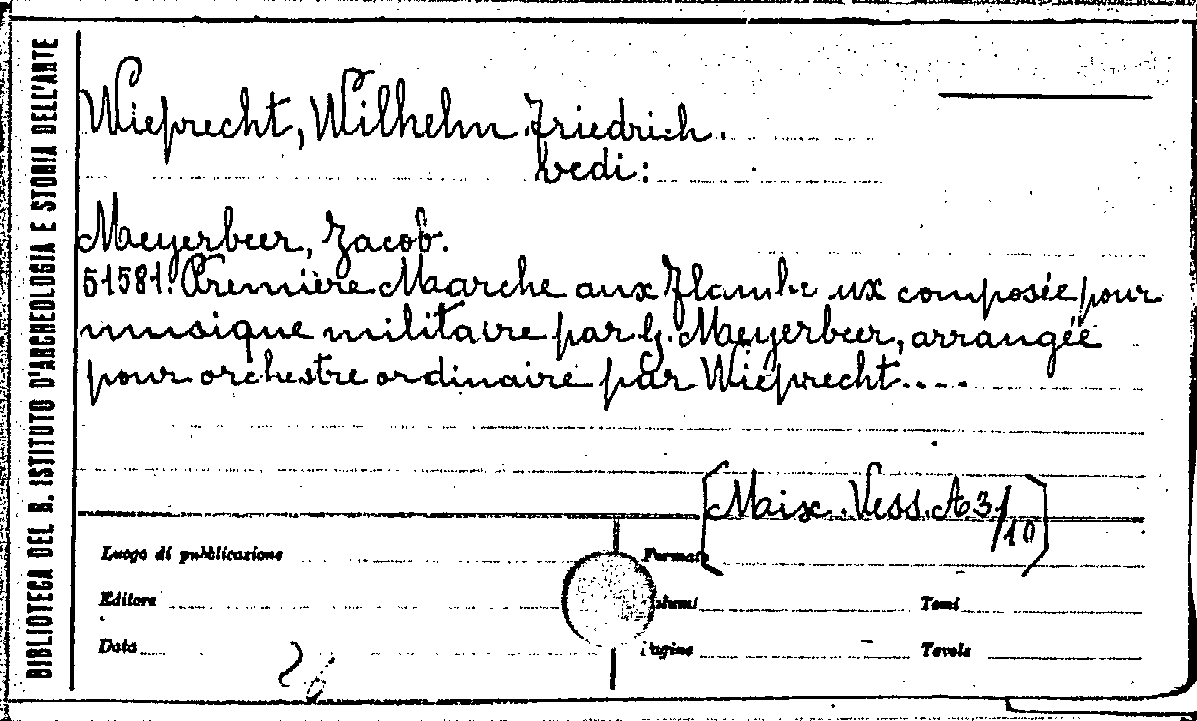 BIBLIOTECA DEL R. ISTITUTO D'ARCHEOLOGIA E STORIA DELL'ARTE
Wieprecht, Wilhelm Friedrich.
vedi:
Meyerbeer, Jacob.
51581. Première Marche aux Flambeaux composée pour
musique militaire par G. Meyerbeer, arrangée
pour orchestre ordinaire par Wieprecht....
[Maix. Vess. A 3/10]
Luogo di pubblicazione
Formato
Editore
Volumi
Tomi
Data
Pagine
Tavole